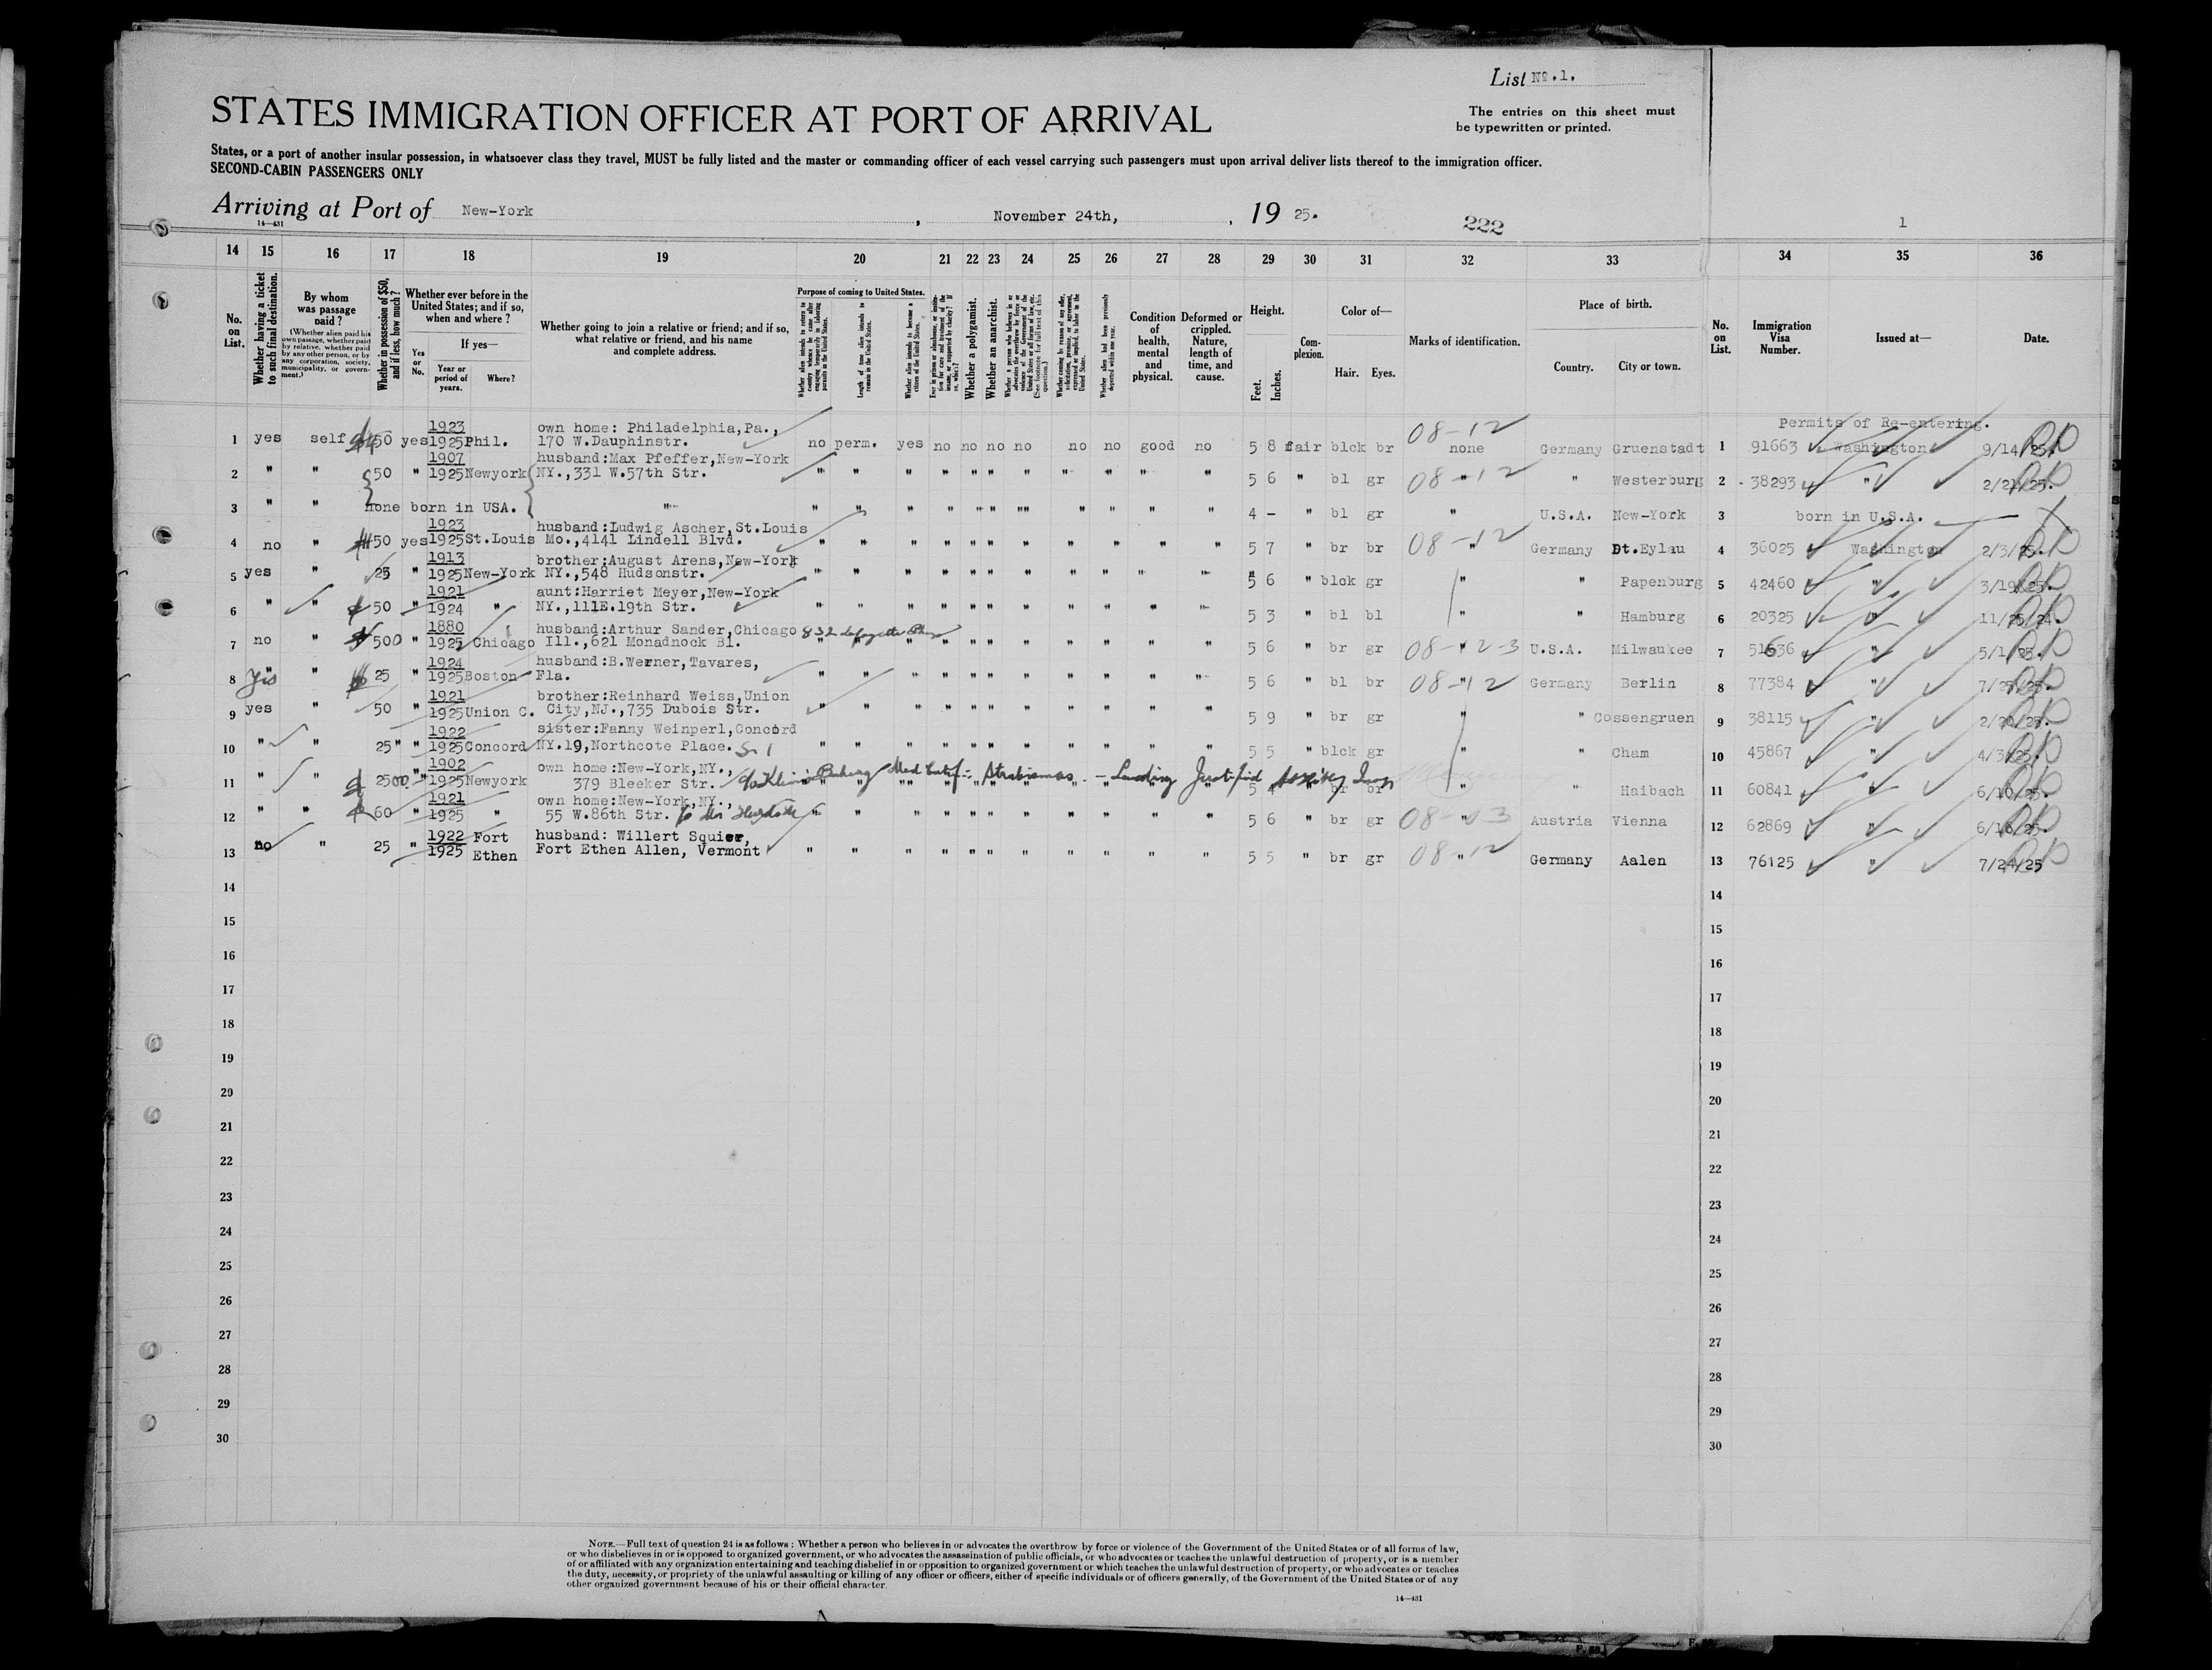 List No.1.
STATES IMMIGRATION OFFICER AT PORT OF ARRIVAL
The entries on this sheet must
be typewritten or printed.
States, or a port of another insular possession, in whatsoever class they travel, MUST be fully listed and the master or commanding officer of each vessel carrying such passengers must upon arrival deliver lists thereof to the immigration officer.
SECOND-CABIN PASSENGERS ONLY
Arriving at Port of New-York , November 24th, , 19 25.
14—431
222
1
14 15 16 17 18 19 20 21 22 23 24 25 26 27 28 29 30 31 32 33 34 35 36
No. on List.
Whether having a ticket to such final destination.
By whom was passage paid?
(Whether alien paid his own passage, whether paid by relative, whether paid by any other person, or by any corporation, society, municipality, or government.)
Whether in possession of $50, and if less, how much?
Whether ever before in the United States; and if so, when and where?
Yes or No.
If yes—
Year or period of years.
Where?
Whether going to join a relative or friend; and if so, what relative or friend, and his name and complete address.
Purpose of coming to United States.
Whether alien intends to return to country whence he came after engaging temporarily in laboring pursuits in the United States.
Length of time alien intends to remain in the United States.
Whether alien intends to become a citizen of the United States.
Whether a polygamist.
Whether an anarchist.
Condition of health, mental and physical.
Deformed or crippled. Nature, length of time, and cause.
Height.
Feet. Inches.
Complexion.
Color of—
Hair. Eyes.
Marks of identification.
Place of birth.
Country. City or town.
No. on List.
Immigration Visa Number.
Issued at—
Date.
Permits of Re-entering.
1 yes self 50 yes 1923 1925 Phil. own home: Philadelphia,Pa., 170 W.Dauphinstr. no perm. yes no no no no no no good no 5 8 fair blck br 08-12 none Germany Gruenstadt 1 91663 Washington 9/14/25.
2 " " 50 " 1907 1925 Newyork husband:Max Pfeffer,New-York NY.,331 W.57th Str. " " " " " " " " " " " 5 6 " bl gr 08-12 " " Westerburg 2 38293 " 2/21/25.
3 " " none born in USA. " " " " " " " "" " " " " 4 - " bl gr " U.S.A. New-York 3 born in U.S.A.
4 no " 50 yes 1923 1925 St.Louis husband:Ludwig Ascher,St.Louis Mo.,4141 Lindell Blvd. " " " " " " " " " " " 5 7 " br br 08-12 " Germany Dt.Eylau 4 36025 Washington 2/3/25.
5 yes " 25 " 1913 1925 New-York brother:August Arens,New-York NY.,548 Hudsonstr. " " " " " " " " " " " 5 6 " blck gr " " Papenburg 5 42460 " 3/19/25.
6 " " 50 " 1921 1924 " aunt:Harriet Meyer,New-York NY.,111E.19th Str. " " " " " " " " " " " 5 3 " bl bl " " Hamburg 6 20325 " 11/25/24.
7 no " 500 " 1880 1925 Chicago husband:Arthur Sander,Chicago Ill.,621 Monadnock Bl. " " " " " " " " " " " 5 6 " br gr 08-12-3 U.S.A. Milwaukee 7 51636 " 5/1/25.
8 yes " 25 " 1924 1925 Boston husband:B.Werner,Tavares, Fla. " " " " " " " " " " " 5 6 " bl br 08-12 " Germany Berlin 8 77384 " 7/27/25.
9 yes " 50 " 1921 1925 Union C. brother:Reinhard Weiss,Union City,NJ.,735 Dubois Str. " " " " " " " " " " " 5 9 " br gr " " Cossengruen 9 38115 " 2/20/25.
10 " " 25 " " 1922 1925 Concord sister:Fanny Weinperl,Concord NY.19,Northcote Place. " " " " " " " " " " " 5 5 " blck gr " " Cham 10 45867 " 4/3/25.
11 " " 2500 " 1902 1925 Newyork own home:New-York,NY., 379 Bleeker Str. Med Certif: Strabismus - Landing Justified 5 4 br br " " Haibach 11 60841 " 6/10/25.
12 " " 60 " 1921 1925 " own home:New-York,NY., 55 W.86th Str. " " " " " " " " " " " 5 6 " br gr " Austria Vienna 12 62869 " 6/16/25.
13 no " 25 " 1922 1925 Fort Ethen husband: Willert Squier, Fort Ethen Allen, Vermont " " " " " " " " " " " 5 5 " br gr 08-12 " Germany Aalen 13 76125 " 7/24/25
14 14
15 15
16 16
17 17
18 18
19 19
20 20
21 21
22 22
23 23
24 24
25 25
26 26
27 27
28 28
29 29
30 30
NOTE.—Full text of question 24 is as follows: Whether a person who believes in or advocates the overthrow by force or violence of the Government of the United States or of all forms of law,
or who disbelieves in or is opposed to organized government, or who advocates the assassination of public officials, or who advocates or teaches the unlawful destruction of property, or is a member
of or affiliated with any organization entertaining and teaching disbelief in or opposition to organized government or which teaches the unlawful destruction of property, or who advocates or teaches
the duty, necessity, or propriety of the unlawful assaulting or killing of any officer or officers, either of specific individuals or of officers generally, of the Government of the United States or of any
other organized government because of his or their official character.
14—431